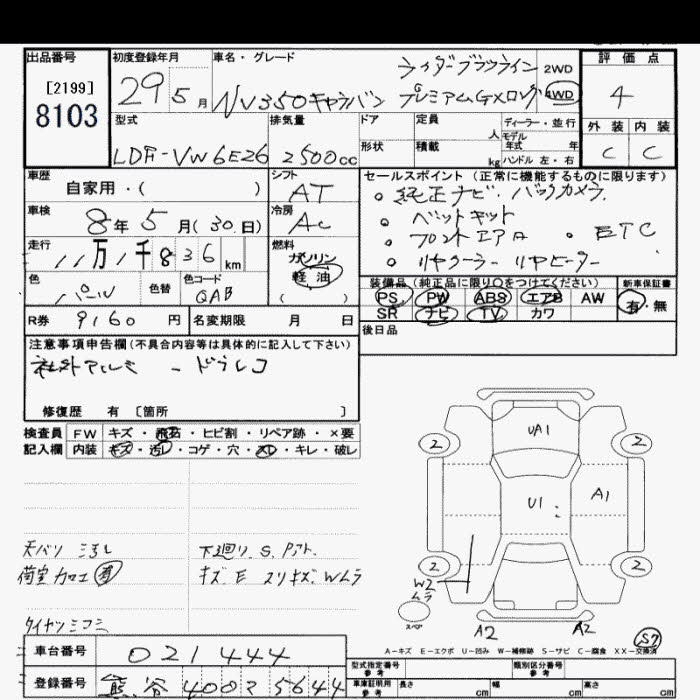 出品番号
[2199]
8103
初度登録年月
29 5 月
車名・グレード
ライダーブラックライン
NV350キャラバン プレミアムGXロング
2WD
4WD
評価点
4
外装 内装
C C
型式
LDF-VW6E26
排気量
2500cc
ドア
形状
定員 人
積載 kg
ディーラー・並行
モデル年式 年
ハンドル 左・右
車歴
自家用・( )
シフト
AT
車検
8年 5月(30日)
冷房
AC
走行
11万1千836km
燃料
ガソリン
軽油
( )
色
パール
色替
色コード
QAB
R券 9160 円
名変期限 月 日
セールスポイント(正常に機能するものに限ります)
。純正ナビ.バックカメラ.
。ベットキット
。フロントエアロ 。ETC
。リヤクーラー リヤヒーター
装備品(純正品に限り○をつけてください)
PS PW ABS エアB AW
SR ナビ TV カワ
新車保証書
有・無
後日品
注意事項申告欄(不具合内容等は具体的に記入して下さい)
社外アルミ - ドラレコ
修復歴 有 [箇所 ]
検査員 FW キズ・飛石・ヒビ割・リペア跡・×要
記入欄 内装 キズ・汚レ・コゲ・穴・・キレ・破レ
UA1
2 2
U1 A1
2 2
W2
ムラ
スペア
A2 A2
S7
天バリ ミヨレ
荷室カロエ
下廻り.S.
キズ.E スリキズ.Wムラ
A-キズ E-エクボ U-凹み W-補修跡 S-サビ C-腐食 XX-交換済
車台番号 021444
登録番号 熊谷 400 25644
型式指定番号 参考
類別区分番号 参考
車庫証明用 参考
長さ cm
幅 cm
高さ cm